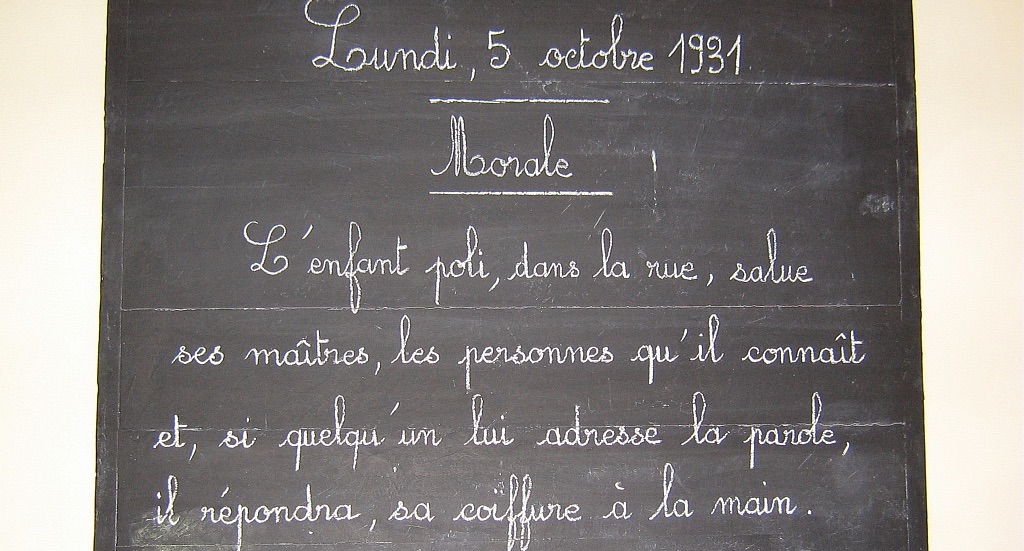 Lundi, 5 octobre 1931
Morale
L'enfant poli, dans la rue, salue
ses maîtres, les personnes qu'il connaît
et, si quelqu'un lui adresse la parole,
il répondra, sa coiffure à la main.